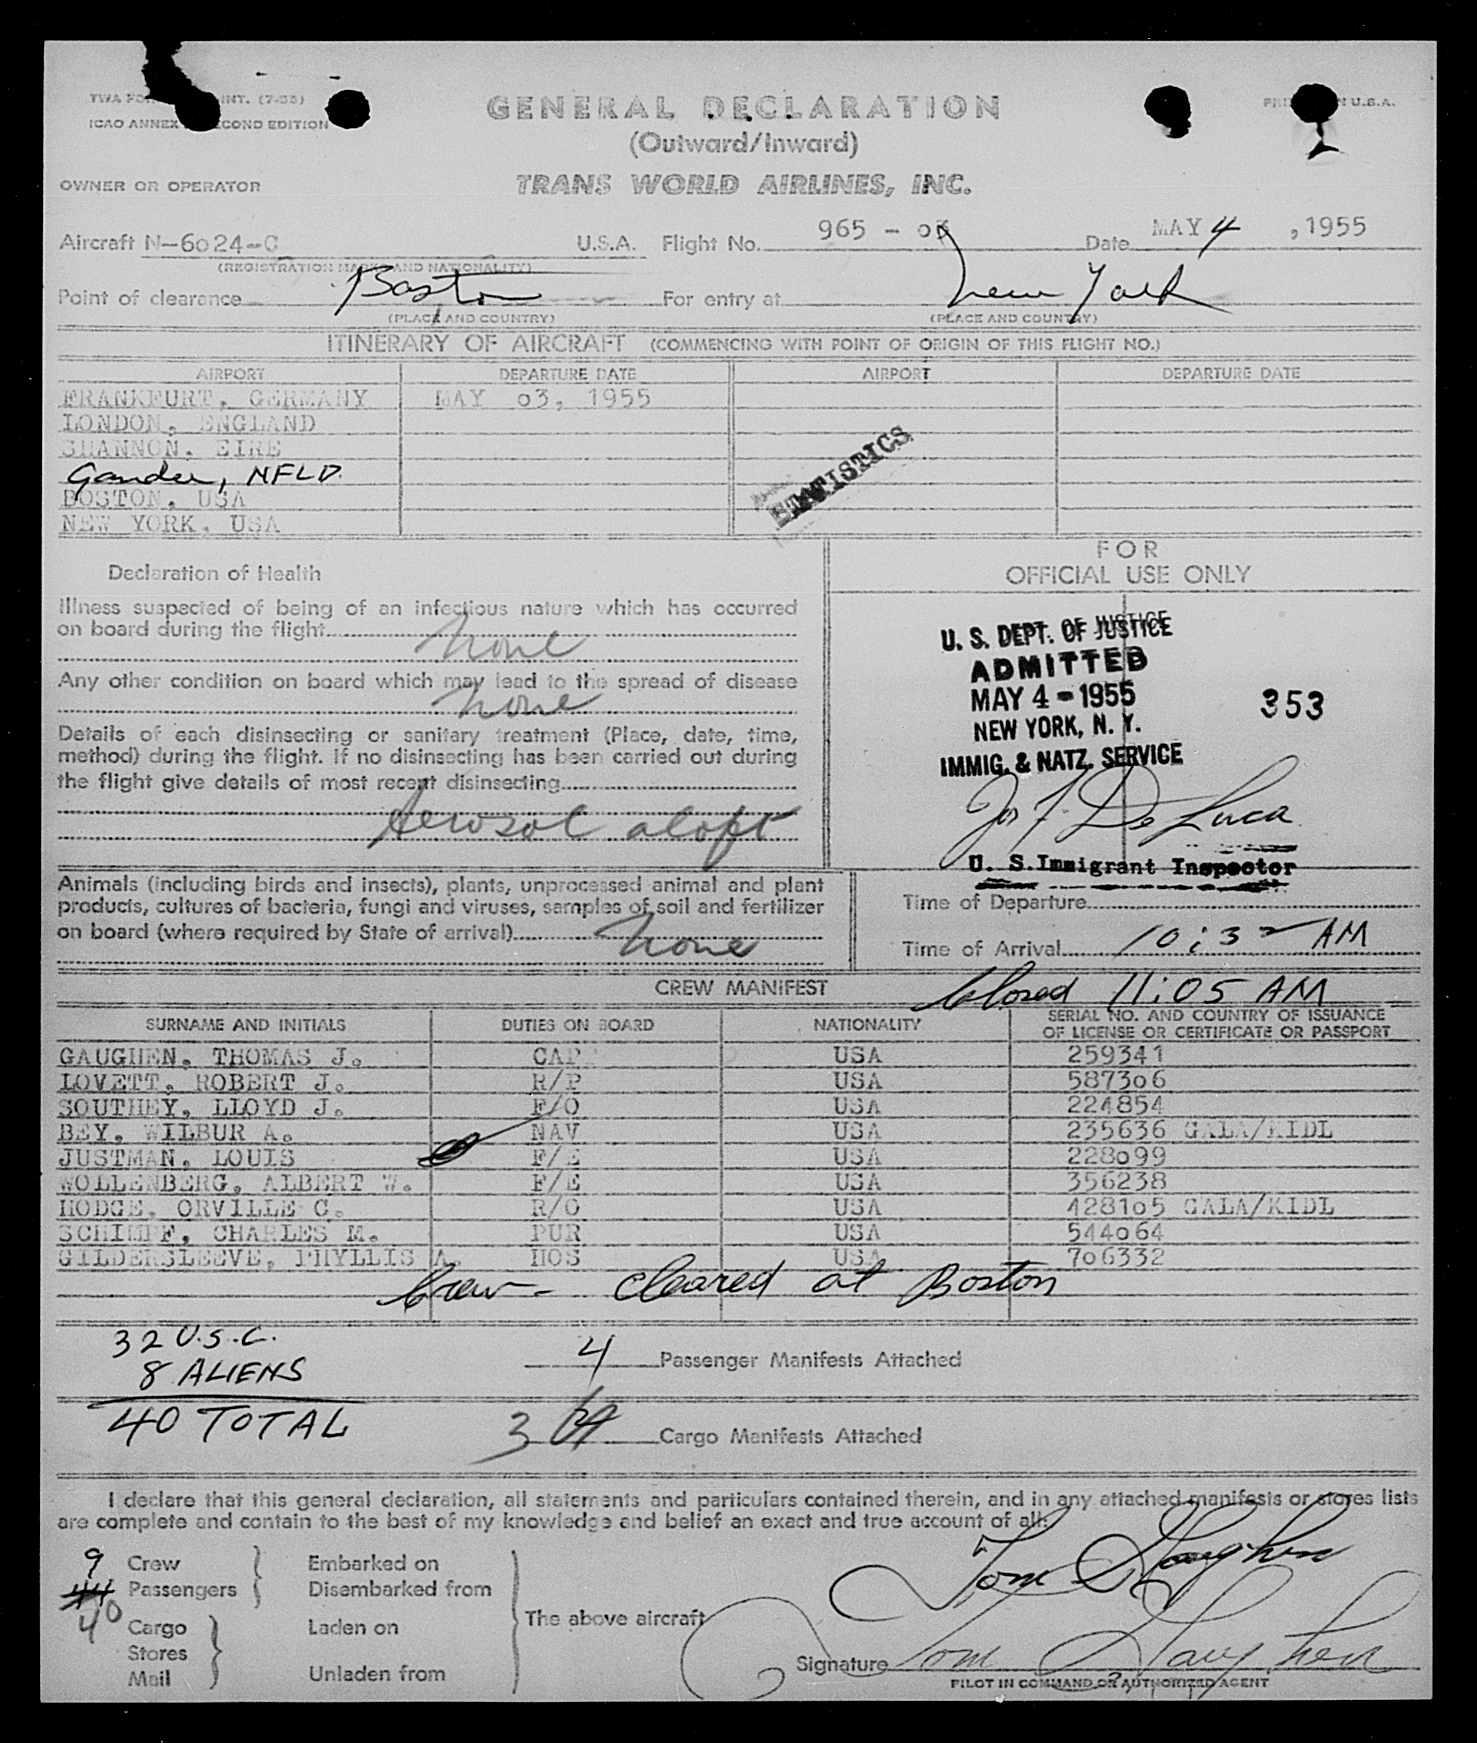 GENERAL DECLARATION
(Outward/Inward)
TRANS WORLD AIRLINES, INC.
TWA INT. (7-55)
ICAO ANNEX SECOND EDITION
U.S.A.
OWNER OR OPERATOR
Aircraft N-6024-C U.S.A. Flight No. 965 - 03 Date MAY 4, 1955
(REGISTRATION MARKS AND NATIONALITY)
Point of clearance Boston For entry at New York
(PLACE AND COUNTRY) (PLACE AND COUNTRY)
ITINERARY OF AIRCRAFT (COMMENCING WITH POINT OF ORIGIN OF THIS FLIGHT NO.)
AIRPORT DEPARTURE DATE AIRPORT DEPARTURE DATE
FRANKFURT, GERMANY MAY 03, 1955
LONDON, ENGLAND
SHANNON, EIRE
Gander, NFLD.
BOSTON, USA
NEW YORK, USA
STATISTICS
Declaration of Health
Illness suspected of being of an infectious nature which has occurred
on board during the flight
None
Any other condition on board which may lead to the spread of disease
None
Details of each disinsecting or sanitary treatment (Place, date, time,
method) during the flight. If no disinsecting has been carried out during
the flight give details of most recent disinsecting
Aerosol aloft
FOR
OFFICIAL USE ONLY
U. S. DEPT. OF JUSTICE
ADMITTED
MAY 4 - 1955 353
NEW YORK, N. Y.
IMMIG. & NATZ. SERVICE
Jos F. De Luca
U. S. Immigrant Inspector
Animals (including birds and insects), plants, unprocessed animal and plant
products, cultures of bacteria, fungi and viruses, samples of soil and fertilizer
on board (where required by State of arrival) None
Time of Departure
Time of Arrival 10:32 AM
CREW MANIFEST Closed 11:05 AM
SURNAME AND INITIALS DUTIES ON BOARD NATIONALITY SERIAL NO. AND COUNTRY OF ISSUANCE
OF LICENSE OR CERTIFICATE OR PASSPORT
GAUGHEN, THOMAS J. CAPT USA 259341
LOVETT, ROBERT J. R/P USA 587306
SOUTHEY, LLOYD J. F/O USA 224854
BEY, WILBUR A. NAV USA 235636 GALA/KIDL
JUSTMAN, LOUIS F/E USA 228099
WOLLENBERG, ALBERT W. F/E USA 356238
HODGE, ORVILLE C. R/O USA 428105 GALA/KIDL
SCHIMPF, CHARLES M. PUR USA 544064
GILDERSLEEVE, PHYLLIS A. HOS USA 706332
Crew - cleared at Boston
32 U.S.C.
8 ALIENS
4 Passenger Manifests Attached
40 TOTAL
3 Cargo Manifests Attached
I declare that this general declaration, all statements and particulars contained therein, and in any attached manifests or stores lists
are complete and contain to the best of my knowledge and belief an exact and true account of all:
Tom Gaughen
9 Crew Embarked on
44 Passengers Disembarked from
40 Cargo Laden on
Stores
Mail Unladen from
The above aircraft
Signature Tom Gaughen
PILOT IN COMMAND OR AUTHORIZED AGENT